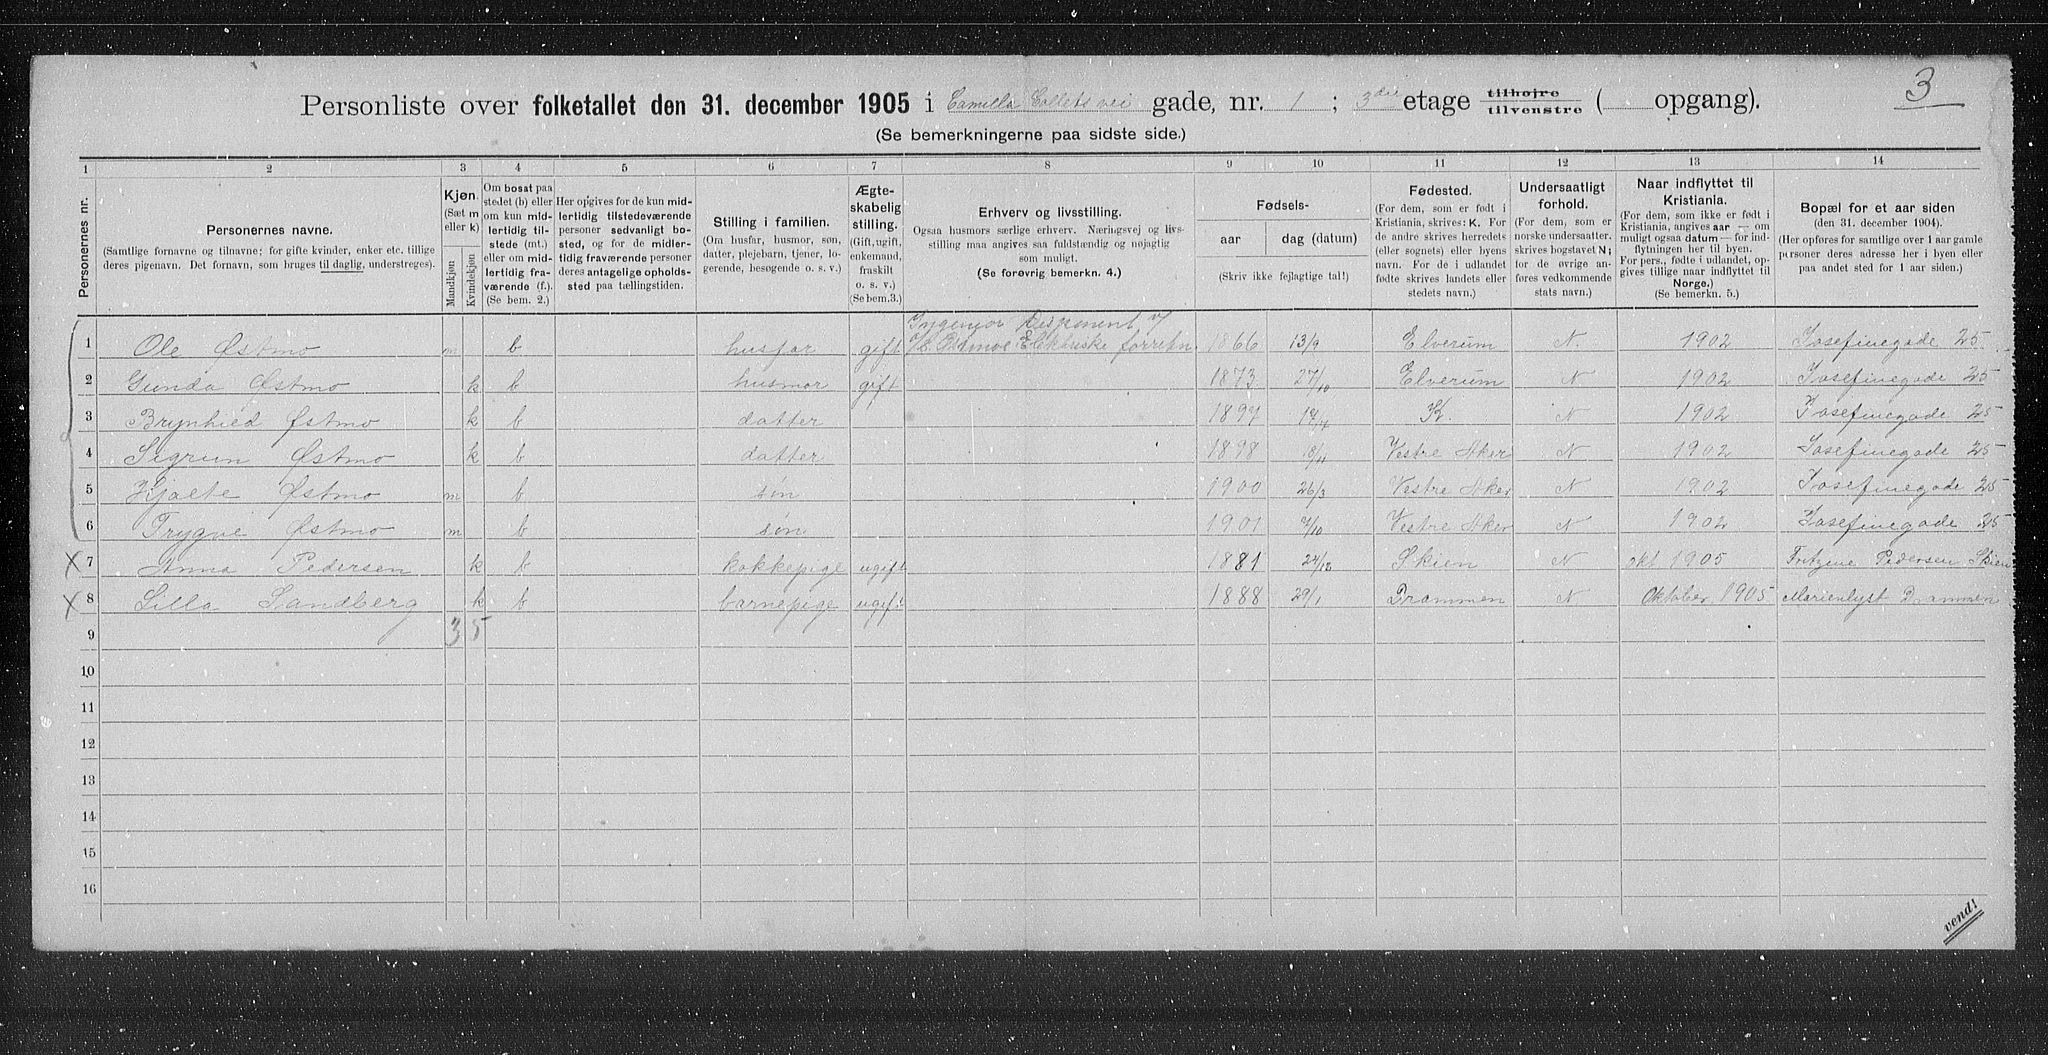 3
Personliste over folketallet den 31. december 1905 i Camilla Colletts vei gade, nr. 1; 3die etage tilhøjre tilvenstre ( opgang).
(Se bemerkningerne paa sidste side.)
1 2 3 4 5 6 7 8 9 10 11 12 13 14
Personernes nr.
Personernes navne.
(Samtlige fornavne og tilnavne; for gifte kvinder, enker etc. tillige
deres pigenavn. Det fornavn, som bruges til daglig, understreges).
Kjøn.
(Sæt m
eller k)
Mandkjøn
Kvindekjøn
Om bosat paa
stedet (b) eller
om kun mid-
lertidig til-
stede (mt.)
eller om mid-
lertidig fra-
værende (f.)
(Se bem. 2.)
Her opgives for de kun mid-
lertidig tilstedeværende
personer sedvanligt bo-
sted, og for de midler-
tidig fraværende personer
deres antagelige opholds-
sted paa tællingstiden.
Stilling i familien.
(Om husfar, husmor, søn,
datter, plejebarn, tjener, lo-
gerende, besøgende o. s. v.)
Ægte-
skabelig
stilling.
(Gift, ugift,
enkemand,
fraskilt
o. s. v.)
(Se bem.3.)
Erhverv og livsstilling.
Ogsaa husmors særlige erhverv. Næringsvej og livs-
stilling maa angives saa fuldstændig og nøjagtig
som muligt.
(Se forøvrig bemerkn. 4.)
Fødsels-
aar dag (datum)
(Skriv ikke fejlagtige tal!)
Fødested.
(For dem, som er født i
Kristiania, skrives: K. For
de andre skrives herredets
(eller sognets) eller byens
navn. For de i udlandet
fødte skrives landets eller
stedets navn.)
Undersaatligt
forhold.
(For dem, som er
norske undersaatter,
skrives bogstavet N;
for de øvrige an-
føres vedkommende
stats navn.)
Naar indflyttet til
Kristiania.
(For dem, som ikke er født i
Kristiania, angives aar — om
muligt ogsaa datum — for ind-
flytningen her til byen.
For pers., fødte i udlandet, op-
gives tillige naar indflyttet til
Norge.)
(Se bemerkn. 5.)
Bopæl for et aar siden
(den 31. december 1904).
(Her opføres for samtlige over 1 aar gamle
personer deres adresse her i byen eller
paa andet sted for 1 aar siden.)
1 Ole Østmo m b husfar gift Ingeniør Disponent v/ Østmoe Elektriske forretn 1866 13/9 Elverum N. 1902 Josefinegade 25
2 Gunda Østmo k b husmor gift 1873 27/10 Elverum N 1902 Josefinegade 25
3 Brynhild Østmo k b datter 1897 17/4 K. N 1902 Josefinegade 25
4 Sigrun Østmo k b datter 1898 18/11 Vestre Aker N 1902 Josefinegade 25
5 Hjalte Østmo m b søn 1900 26/3 Vestre Aker N 1902 Josefinegade 25
6 Trygve Østmo m b søn 1901 7/10 Vestre Aker N 1902 Josefinegade 25
X 7 Anna Pedersen k b kokkepige ugift 1881 24/12 Skien N okt 1905 Fritzene Pedersen Skien
X 8 Lilla Sandberg k b barnepige ugift 1888 29/1 Drammen N Oktober 1905 Marienlyst Drammen
9 3 5
10
11
12
13
14
15
16
vend!